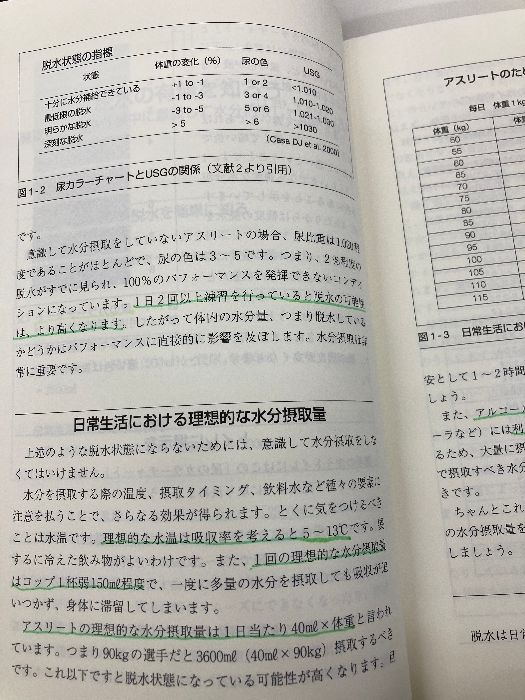 脱水状態の指標
状態 体重の変化(%) 尿の色 USG
十分に水分補給できている +1 to -1 1 or 2 <1.010
最低限の脱水 -1 to -3 3 or 4 1.010-1.020
明らかな脱水 -3 to -5 5 or 6 1.021-1.030
深刻な脱水 > 5 > 6 >1030
(Casa DJ et al. 2000)
図1-2 尿カラーチャートとUSGの関係(文献2より引用)
です。
意識して水分摂取をしていないアスリートの場合、尿比重は1.030程
度であることがほとんどで、尿の色は3~5です。つまり、2%程度の
脱水がすでに見られ、100%のパフォーマンスを発揮できないコンディ
ションになっています。1日2回以上練習を行っていると脱水の可能性
は、より高くなります。したがって体内の水分量、つまり脱水している
かどうかにパフォーマンスに直接的に影響を及ぼします。水分摂取は非
常に重要です。
日常生活における理想的な水分摂取量
上述のような脱水状態にならないためには、意識して水分摂取をしな
くてはいけません。
水分を摂取する際の温度、摂取タイミング、飲料水など種々の要素に
注意を払うことで、さらなる効果が得られます。とくに気をつけるべき
ことは水温です。理想的な水温は吸収率を考えると5~13℃です。要
するに冷えた飲み物がよいわけです。また、1回の理想的な水分摂取量
はコップ1杯弱150mℓ程度で、一度に多量の水分を摂取しても吸収が追
いつかず、身体に滞留してしまいます。
アスリートの理想的な水分摂取量は1日当たり40mℓ×体重と言われ
ています。つまり90kgの選手だと3600mℓ(40mℓ×90kg)摂取するべき
です。これ以下ですと脱水状態になっている可能性が高くなります。目
アスリートのため
毎日 体重1kg
体重(kg)
50
55
60
65
70
75
80
85
90
95
100
105
110
115
図1-3 日常生活にお
安として1~2時間
しょう。
また、アルコール
ーラなど)には利
るため、大量に摂
で摂取すべき水分
きです。
ちゃんとこれ
の水分摂取量を
しましょう。
脱水は日常